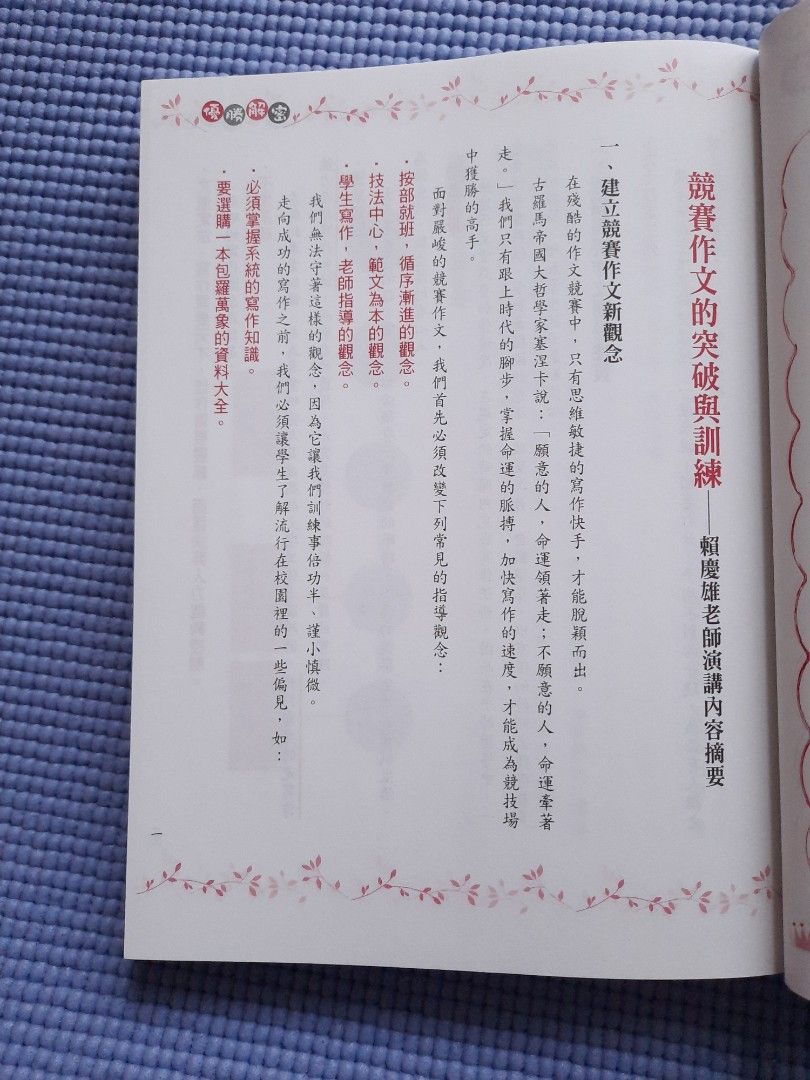 優勝解密
競賽作文的突破與訓練——賴慶雄老師演講內容摘要
一、建立競賽作文新觀念
在殘酷的作文競賽中，只有思維敏捷的寫作快手，才能脫穎而出。
古羅馬帝國大哲學家塞涅卡說：「願意的人，命運領著走；不願意的人，命運牽著
走。」我們只有跟上時代的腳步，掌握命運的脈搏，加快寫作的速度，才能成為競技場
中獲勝的高手。
面對嚴峻的競賽作文，我們首先必須改變下列常見的指導觀念：
．按部就班，循序漸進的觀念。
．技法中心，範文為本的觀念。
．學生寫作，老師指導的觀念。
我們無法守著這樣的觀念，因為它讓我們訓練事倍功半、謹小慎微。
走向成功的寫作之前，我們必須讓學生了解流行在校園裡的一些偏見，如：
．必須掌握系統的寫作知識。
．要選購一本包羅萬象的資料大全。
一